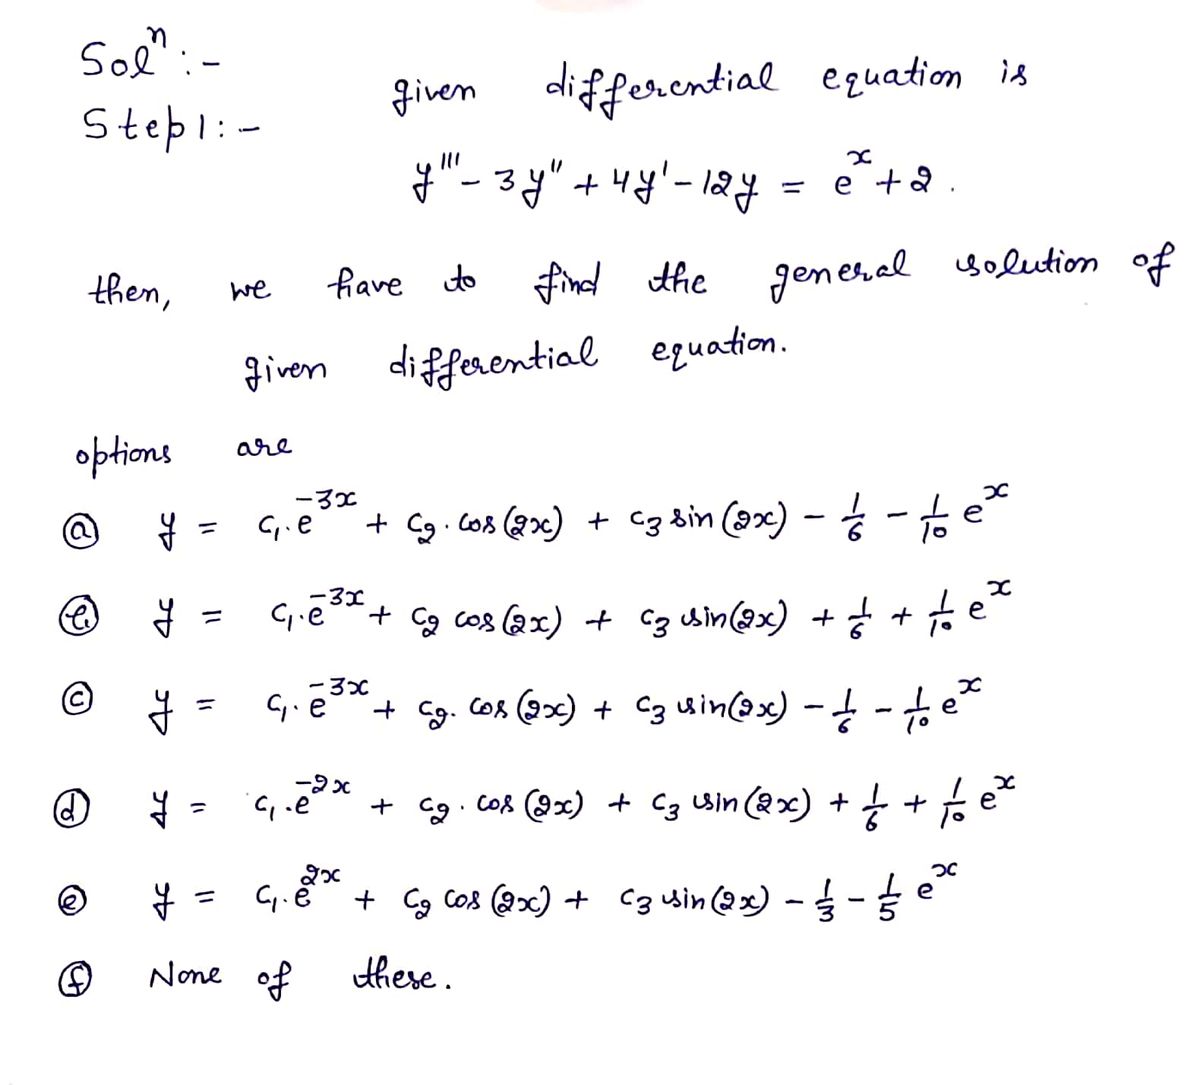 Solⁿ :-
Step 1 :-
given differential equation is
y''' - 3y'' + 4y' - 12y = e^x + 2 .
then, we have to find the general solution of
given differential equation.
options are
ⓐ y = c₁.e^{-3x} + c₂.cos(2x) + c₃ sin(2x) - 1/6 - 1/10 e^x
ⓑ y = c₁.e^{-3x} + c₂ cos(2x) + c₃ sin(2x) + 1/6 + 1/10 e^x
ⓒ y = c₁.e^{-3x} + c₂. cos(2x) + c₃ sin(2x) - 1/6 - 1/10 e^x
ⓓ y = c₁.e^{-2x} + c₂. cos(2x) + c₃ sin(2x) + 1/6 + 1/10 e^x
ⓔ y = c₁.e^{2x} + c₂ cos(2x) + c₃ sin(2x) - 1/3 - 1/5 e^x
ⓕ None of these.